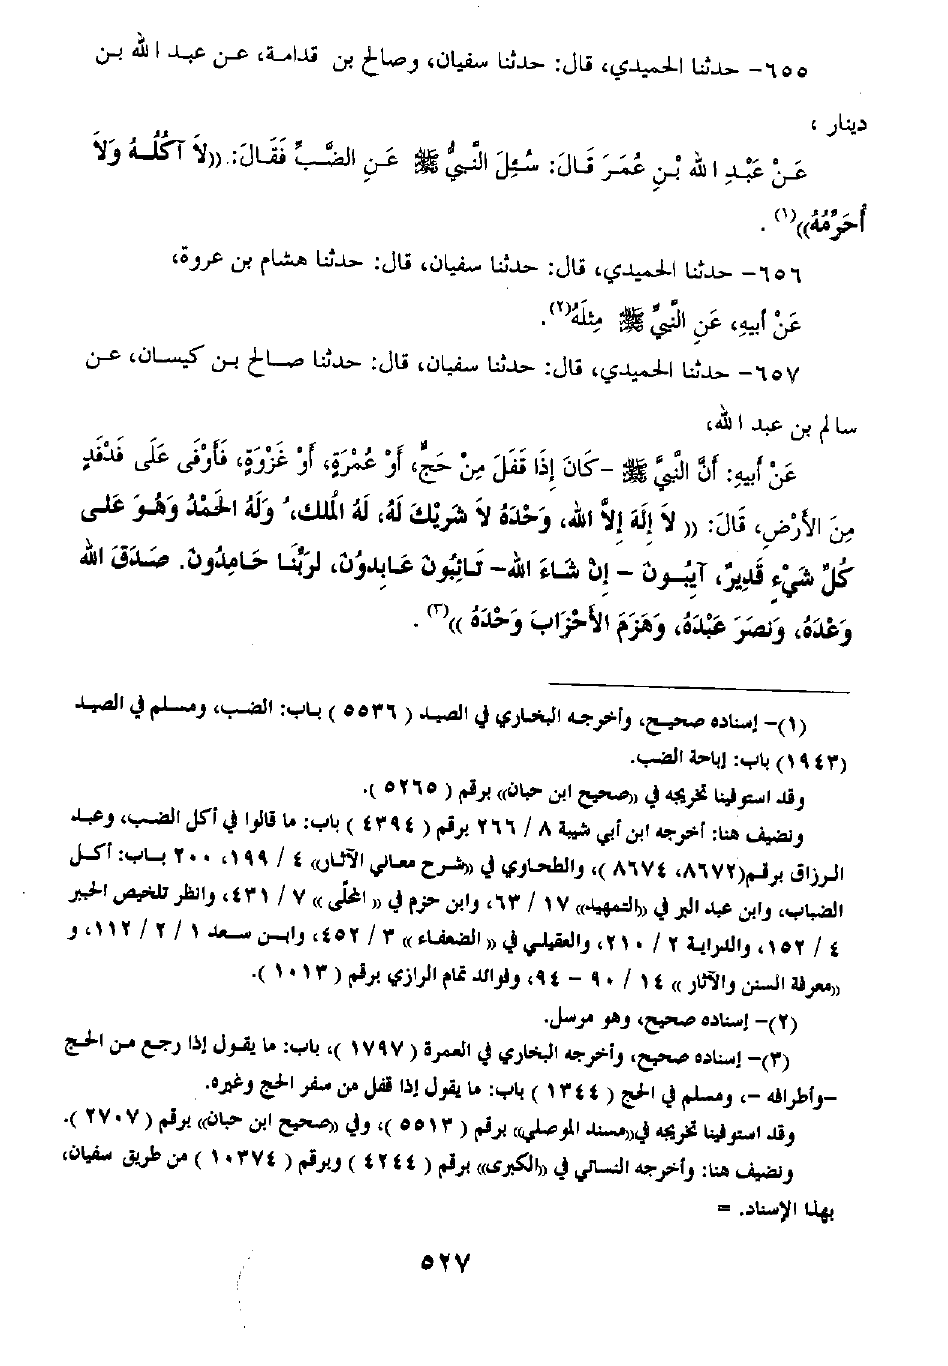 ٦٥٥- حدثنا الحميدي، قال: حدثنا سفيان، وصالح بن قدامة، عن عبد الله بن
دينار ،
عَنْ عَبْدِ اللهِ بْنِ عُمَرَ قَالَ: سُئِلَ النَّبِيُّ ﷺ عَنِ الضَّبِّ فَقَالَ: ((لاَ آكُلُهُ وَلاَ
أُحَرِّمُهُ))(١) .
٦٥٦- حدثنا الحميدي، قال: حدثنا سفيان، قال: حدثنا هشام بن عروة،
عَنْ أبيهِ، عَنِ النَّبِيِّ ﷺ مِثلَهُ(٢).
٦٥٧- حدثنا الحميدي، قال: حدثنا سفيان، قال: حدثنا صالح بن كيسان، عن
سالم بن عبد الله،
عَنْ أبيهِ: أنَّ النَّبِيَّ ﷺ -كَانَ إِذَا قَفَلَ مِنْ حَجٍّ، أوْ عُمْرَةٍ، أوْ غَزْوَةٍ، فَأَوْفَى عَلَى فَدْفَدٍ
مِنَ الأَرْضِ، قَالَ: (( لاَ إِلَهَ إِلاَّ اللهُ، وَحْدَهُ لاَ شَرِيْكَ لَهُ، لَهُ الْمُلكُ، وَلَهُ الحَمْدُ وَهُوَ عَلى
كُلِّ شَيْءٍ قَدِيرٌ، آيِبُونَ - إنْ شَاءَ اللهُ- تَائِبُونَ عَابِدوُنَ، لرَبِّنَا حَامِدُونَ. صَدَقَ اللهُ
وَعْدَهُ، وَنصَرَ عَبْدَهُ، وَهَزَمَ الأَحْزَابَ وَحْدَهُ ))(٣) .
(١)- إسناده صحيح، وأخرجه البخاري في الصيد ( ٥٥٣٦ ) باب: الضب، ومسلم في الصيد
(١٩٤٣) باب: إباحة الضب.
وقد استوفينا تخريجه في ((صحيح ابن حبان)) برقم ( ٥٢٦٥ ).
ونضيف هنا: أخرجه ابن أبي شيبة ٨ / ٢٦٦ برقم ( ٤٣٩٤ ) باب: ما قالوا في أكل الضب، وعبد
الرزاق برقم(٨٦٧٢، ٨٦٧٤ )، والطحاوي في ((شرح معاني الآثار)) ٤ / ١٩٩، ٢٠٠ باب: أكل
الضباب، وابن عبد البر في ((التمهيد)) ١٧ / ٦٣، وابن حزم في (( المحلّى )) ٧ / ٤٣١، وانظر تلخيص الحبير
٤ / ١٥٢، والدراية ٢ / ٢١٠، والعقيلي في (( الضعفاء )) ٣ / ٤٥٢، وابن سعد ١ / ٢ / ١١٢، و
((معرفة السنن والآثار )) ١٤ / ٩٠ - ٩٤، وفوائد تمام الرازي برقم ( ١٠١٣ ).
(٢)- إسناده صحيح، وهو مرسل.
(٣)- إسناده صحيح، وأخرجه البخاري في العمرة ( ١٧٩٧ )، باب: ما يقول إذا رجع من الحج
-وأطرافه -، ومسلم في الحج ( ١٣٤٤ ) باب: ما يقول إذا قفل من سفر الحج وغيره.
وقد استوفينا تخريجه في((مسند الموصلي)) برقم ( ٥٥١٣ )، وفي ((صحيح ابن حبان)) برقم ( ٢٧٠٧ ).
ونضيف هنا: وأخرجه النسائي في ((الكبرى)) برقم ( ٤٢٤٤ ) وبرقم ( ١٠٣٧٤ ) من طريق سفيان،
بهذا الإسناد. =
٥٢٧